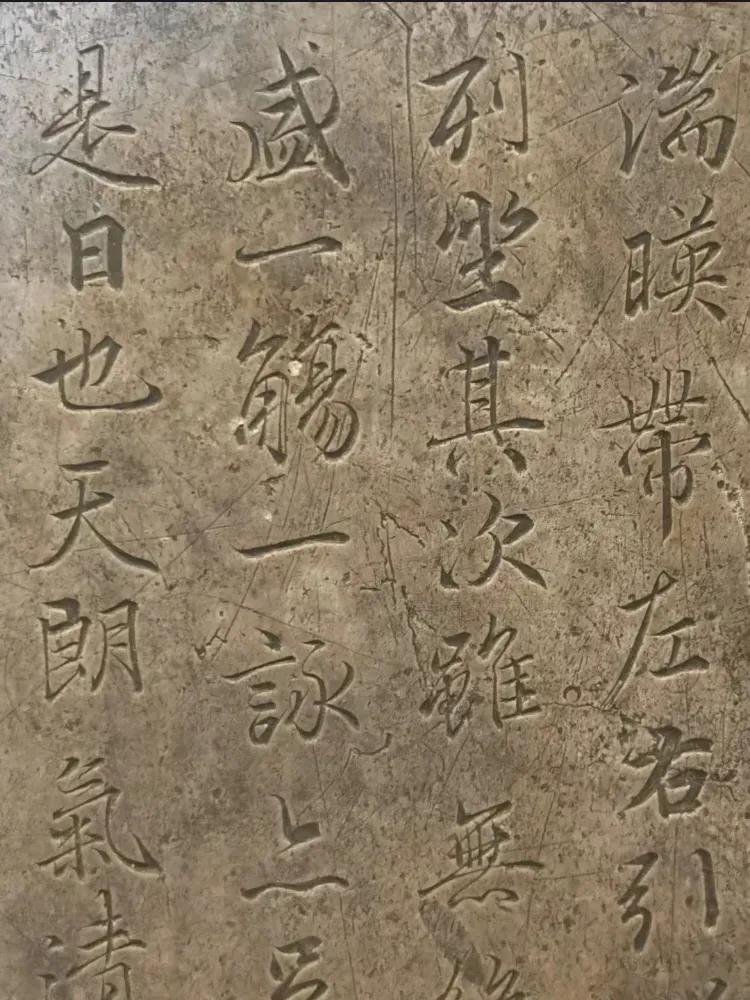 湍暎帶左右引
列坐其次雖無
盛一觴一詠亦足
是日也天朗氣清